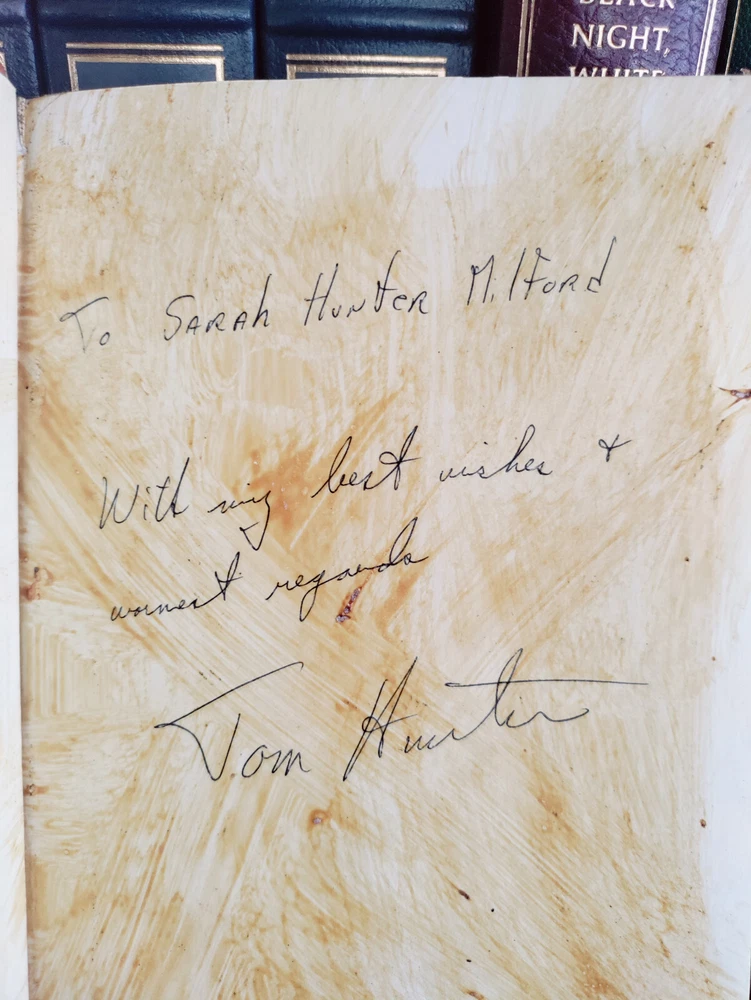 BLACK
NIGHT,
WHITE
To SARAH HUNTER MilFord
With my best wishes +
warmest regards
Tom Hunter